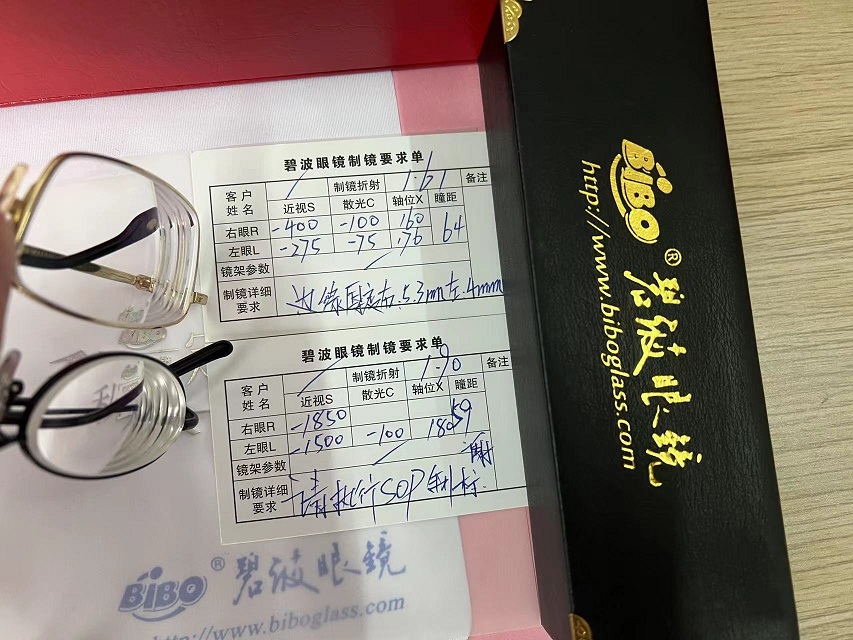 碧波眼镜制镜要求单
客户
姓名
制镜折射 1.61 备注
近视S 散光C 轴位X 瞳距
右眼R -400 -100 160 64
左眼L -275 -75 176
镜架参数
制镜详细
要求
边缘厚度右.5.3mm左.4mm
碧波眼镜制镜要求单
客户
姓名
制镜折射 1.90 备注
近视S 散光C 轴位X 瞳距
右眼R -1850 59
左眼L -1500 -100 180
镜架参数
制镜详细
要求
请执行SOP
谢
BiBO® 碧波眼镜
http://www.biboglass.com
BiBO® 碧波眼镜
http://www.biboglass.com